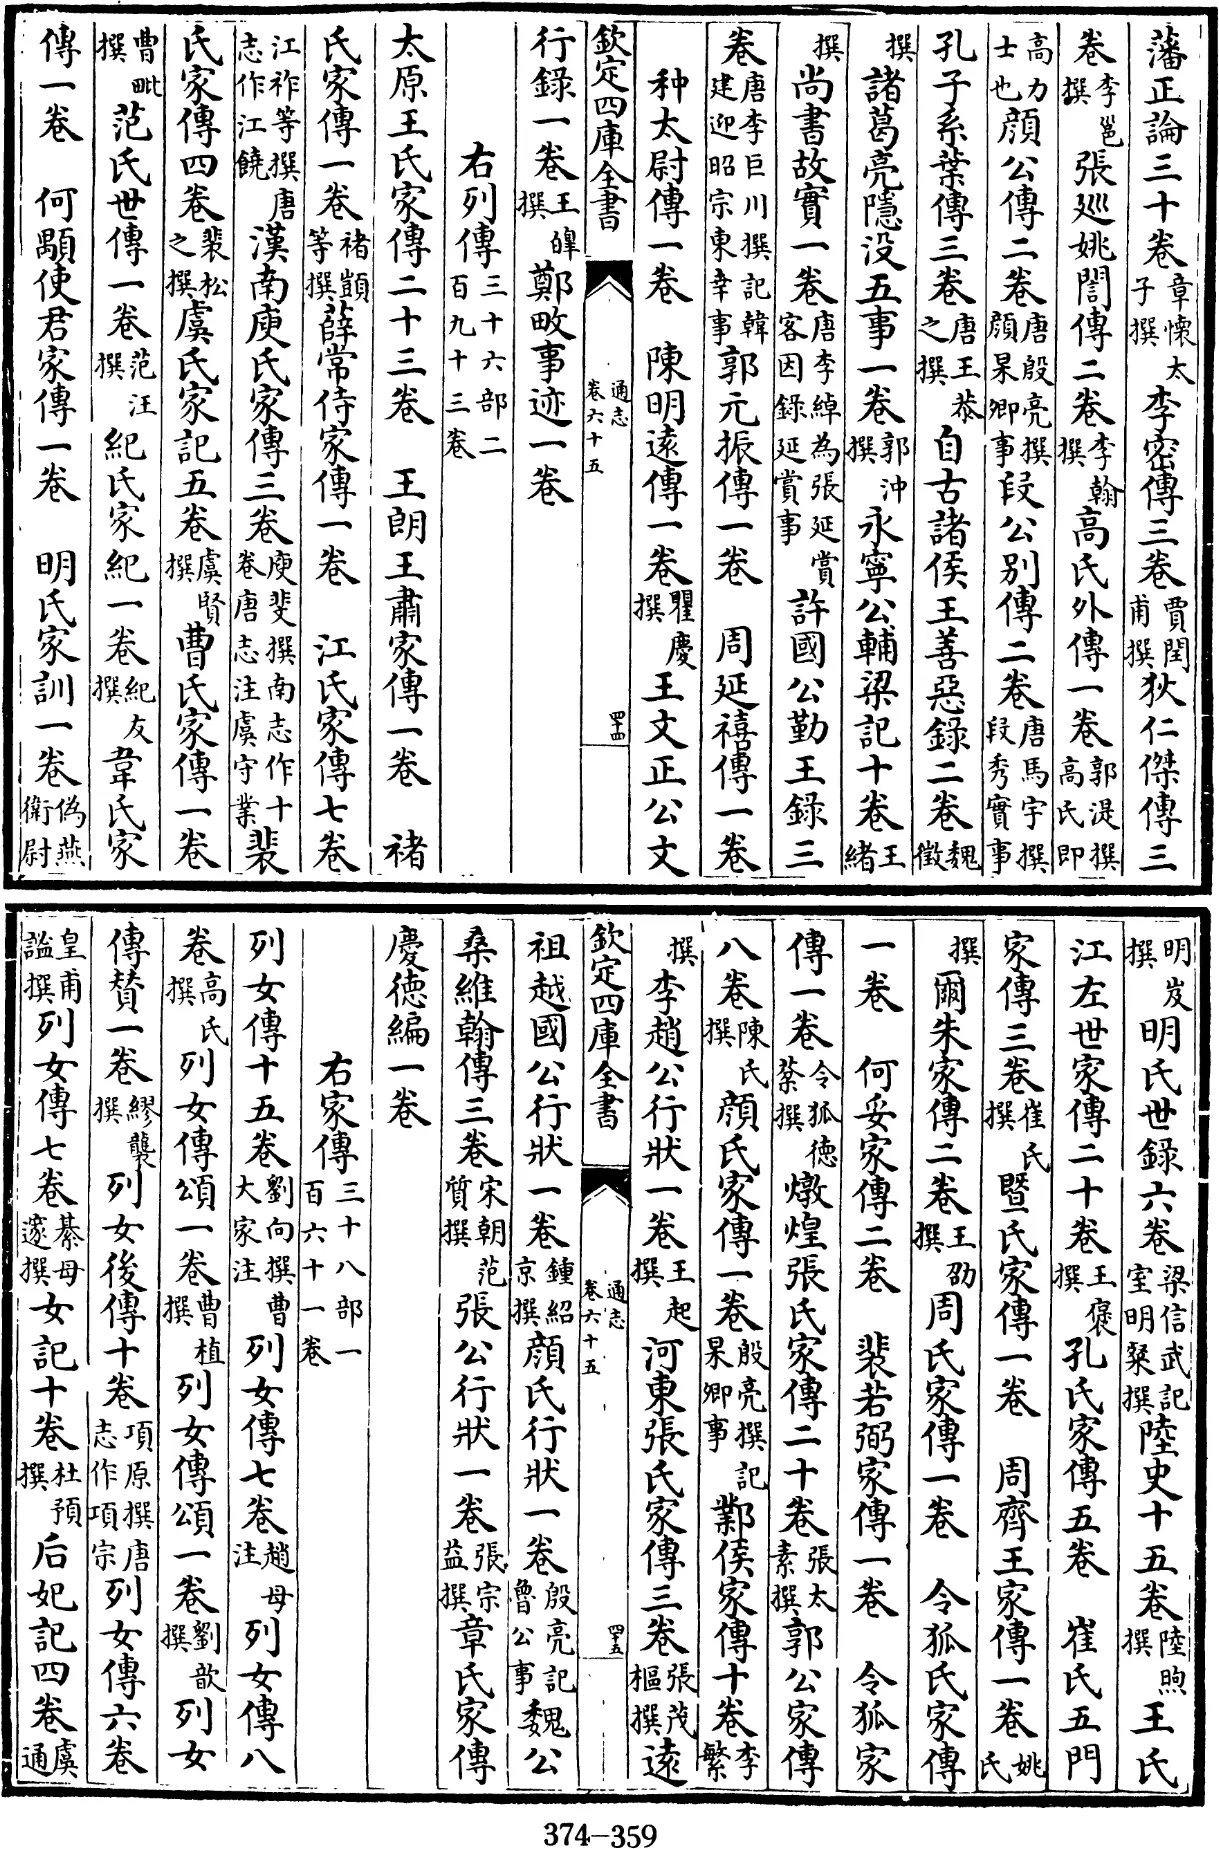 藩正論三十卷章懷太子撰　李密傳三卷賈閏甫撰狄仁傑傳三
卷李邕撰張巡姚誾傳二卷李翰撰高氏外傳一卷郭湜撰高氏即
高力士也顔公傳二卷唐殷亮撰顔杲卿事段公别傳二卷唐馬宇撰段秀實事
孔子系葉傳三卷唐王恭之撰　自古諸侯王善惡錄二卷魏徵
撰　諸葛亮隱没五事一卷郭沖撰　永寧公輔梁記十卷王緒
撰　尚書故實一卷唐李綽為張延賞客因錄延賞事　許國公勤王錄三
卷唐李巨川撰記韓建迎昭宗東幸事　郭元振傳一卷　周延禧傳一卷
种太尉傳一卷　陳明遠傳一卷瞿慶撰　王文正公文
欽定四庫全書　通志卷六十五　四十四
行錄一卷王皥撰　鄭畋事迹一卷
右列傳三十六部二百九十三卷
太原王氏家傳二十三卷　王朗王肅家傳一卷　褚
氏家傳一卷褚顗等撰薛常侍家傳一卷　江氏家傳七卷
江祚等撰唐志作江饒　漢南庾氏家傳三卷庾斐撰南志作十卷唐志注虞守業裴
氏家傳四卷裴松之撰虞氏家記五卷虞賢撰　曹氏家傳一卷
曹毗撰　范氏世傳一卷范汪撰　紀氏家紀一卷紀友撰　韋氏家
傳一卷　何顒使君家傳一卷　明氏家訓一卷偽燕衛尉
明岌撰　明氏世錄六卷梁信武記室明粲撰陸史十五卷陸煦撰　王氏
江左世家傳二十卷王褒撰　孔氏家傳五卷　崔氏五門
家傳三卷崔氏撰　暨氏家傳一卷　周齊王家傳一卷姚氏
撰　爾朱家傳二卷王劭撰　周氏家傳一卷　令狐氏家傳
一卷　何妥家傳二卷　裴若弼家傳一卷　令狐家
傳一卷令狐德棻撰　燉煌張氏家傳二十卷張太素撰　郭公家傳
八卷陳氏撰　顔氏家傳一卷殷亮撰記杲卿事　鄴侯家傳十卷李繁
撰　李趙公行狀一卷王起撰　河東張氏家傳三卷張茂樞撰遠
欽定四庫全書　通志卷六十五　四十五
祖越國公行狀一卷鍾紹京撰　顔氏行狀一卷殷亮記魯公事魏公
桑維翰傳三卷宋朝范質撰　張公行狀一卷張宗益撰　章氏家傳
慶德編一卷
右家傳三十八部一百六十一卷
列女傳十五卷劉向撰曹大家注　列女傳七卷趙母注　列女傳八
卷高氏撰　列女傳頌一卷曹植撰　列女傳頌一卷劉歆撰　列女
傳贊一卷繆襲撰　列女後傳十卷項原撰唐志作項宗列女傳六卷
皇甫謐撰列女傳七卷綦母邃撰女記十卷杜預撰　后妃記四卷虞通
374-359